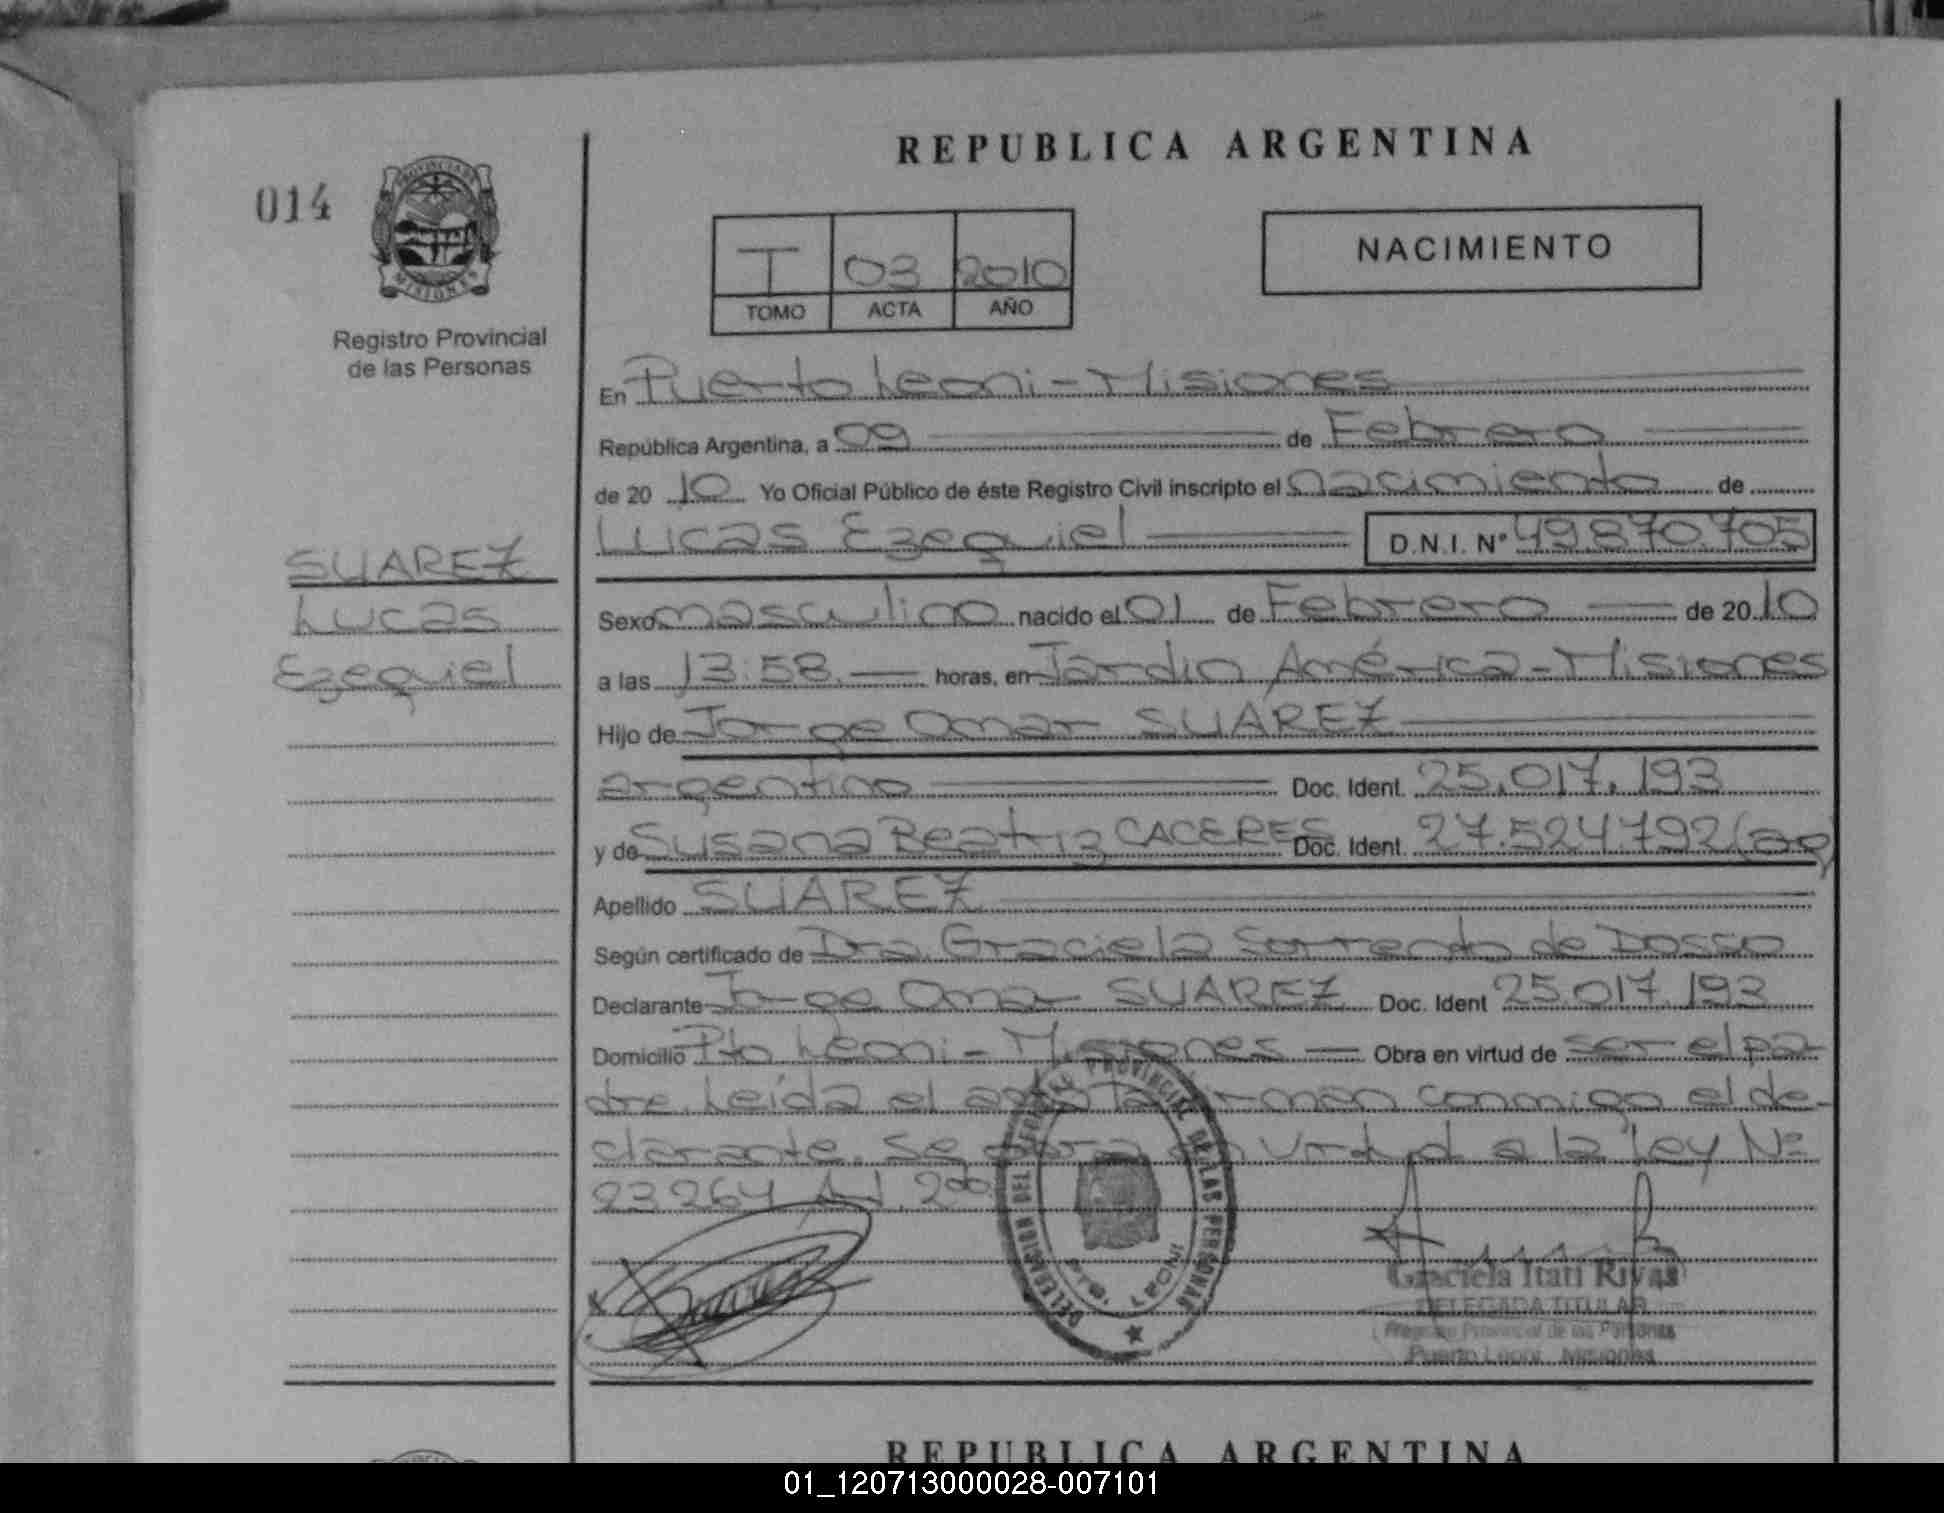 REPUBLICA ARGENTINA
014
PROVINCIA DE
MISIONES
Registro Provincial
de las Personas
T 03 2010
TOMO ACTA AÑO
NACIMIENTO
En Puerto Leoni - Misiones
República Argentina, a 09 de Febrero
de 2010 Yo Oficial Público de éste Registro Civil inscripto el nacimiento de
Lucas Ezequiel D.N.I. Nº 49.870.705
SUAREZ
Lucas
Ezequiel
Sexo masculino nacido el 01 de Febrero de 2010
a las 13:58 horas, en Jardin América - Misiones
Hijo de Jorge Omar SUAREZ
argentino Doc. Ident. 25.017.193
y de Susana Beatriz CACERES Doc. Ident. 27.524.792 (ag)
Apellido SUAREZ
Según certificado de Dra. Graciela Sorrento de Dosso
Declarante Jorge Omar SUAREZ Doc. Ident 25.017.193
Domicilio Pto Leoni - Misiones Obra en virtud de ser el pa-
dre. Leída el acta la firman conmigo el de-
clarante. Se obra en virtud a la Ley Nº
23.264
DELEGACION DEL REGISTRO PROVINCIAL DE LAS PERSONAS
PTO. LEONI
Graciela Itati Rivas
DELEGADA TITULAR
Registro Provincial de las Personas
Puerto Leoni Misiones
REPUBLICA ARGENTINA
01_120713000028-007101